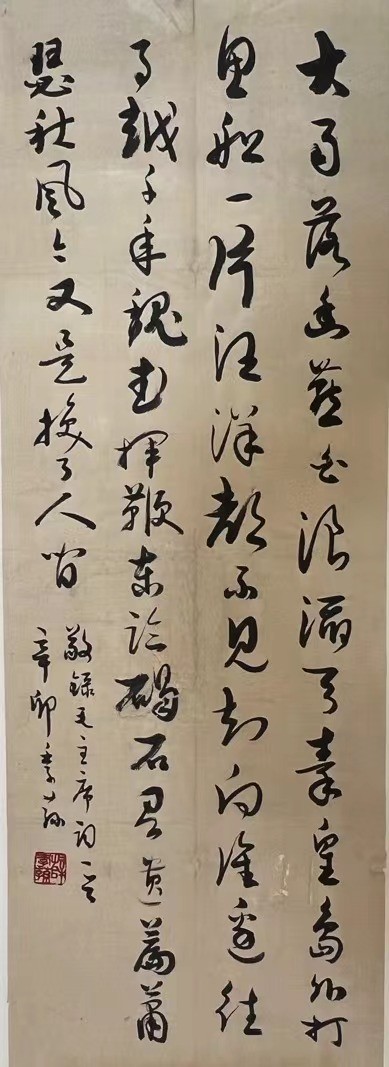 大雨落幽燕白浪滔天秦皇島外打
魚船一片汪洋都不見知向誰邊往
事越千年魏武揮鞭東臨碣石有遺篇蕭
瑟秋風今又是換了人間
敬録毛主席詞一首
辛卯